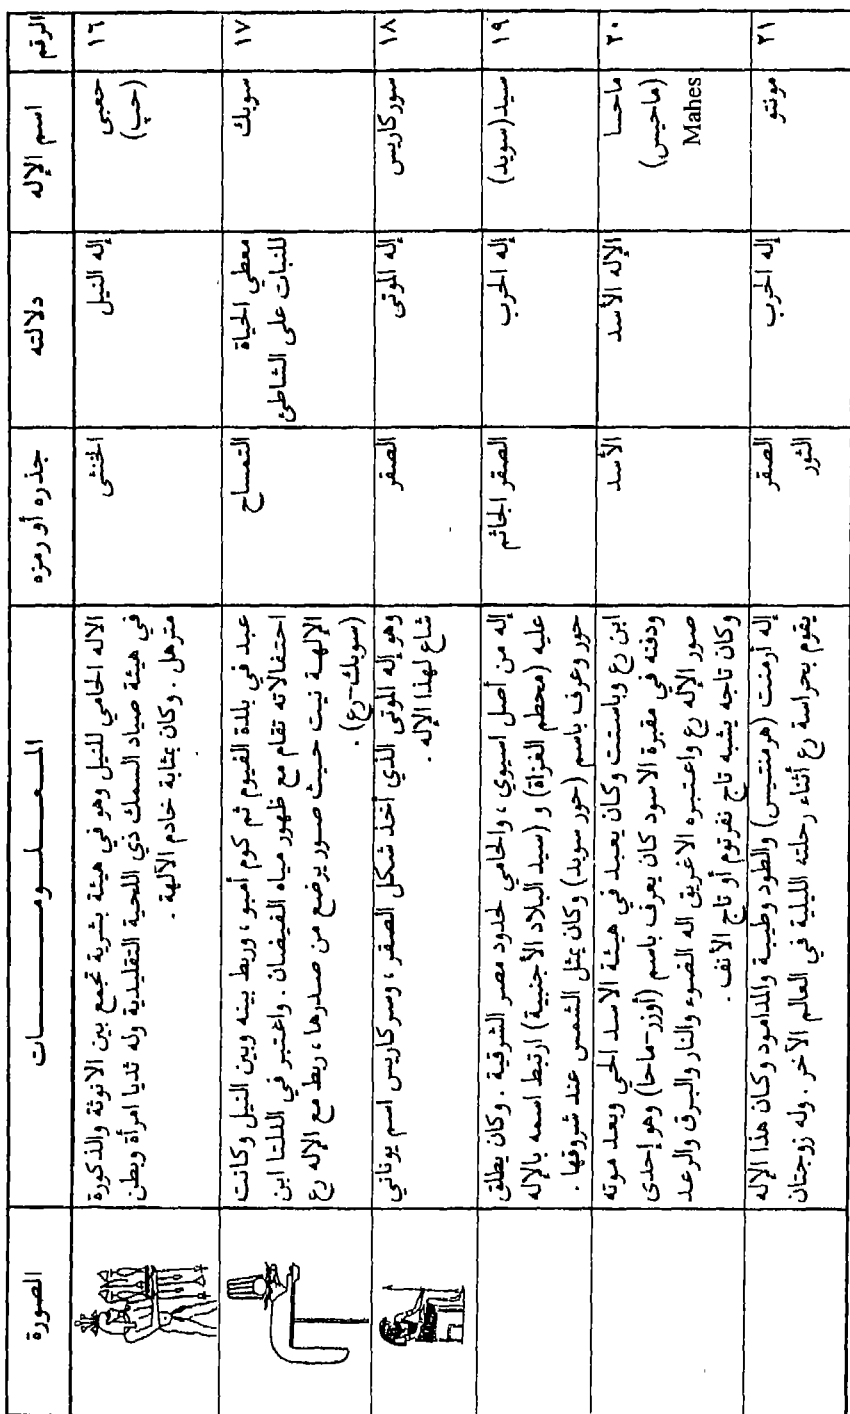 الرقم
اسم الإله
دلالته
جذره أو رمزه
المـعـلـومـــات
الصورة
١٦
حعبي
(حب)
إله النيل
الخنثى
الاله الحامي للنيل وهو في هيئة بشرية تجمع بين الانوثة والذكورة
في هيئة صياد السمك ذي اللحية التقليدية وله ثديا امرأة وبطن
مترهل . وكان بمثابة خادم الآلهة .
١٧
سوبك
معطي الحياة
للنبات على الشاطئ
التمساح
عبد في بلدة الفيوم ثم كوم أمبو ، وربط بينه وبين النيل وكانت
احتفالاته تقام مع ظهور مياه الفيضان . واعتبر في الدلتا ابن
الإلهة نيت حيث صور يرضع من صدرها ، ربط مع الإله رع
(سوبك-رع) .
١٨
سوركاريس
إله الموتى
الصقر
وهو إله الموتى الذي أخذ شكل الصقر ، وسركاريس اسم يوناني
شاع لهذا الإله .
١٩
سبد (سوبد)
إله الحرب
الصقر الجاثم
إله من أصل اسيوي ، والحامي لحدود مصر الشرقية . وكان يطلق
عليه (محطم الغزاة) و (سيد البلاد الأجنبية) ارتبط اسمه بالإله
حور وعرف باسم (حور سوبد) وكان يمثل الشمس عند شروقها .
٢٠
ماحسا
(ماحيس)
Mahes
الإله الأسد
الأسد
ابن رع وباستت وكان يعبد في هيئة الاسد الحي وبعد موته
ودفنه في مقبرة الاسود كان يعرف باسم (أوزر-ماحا) وهو إحدى
صور الإله رع واعتبره الاغريق اله الضوء والنار والبرق والرعد
وكان تاجه يشبه تاج نفرتوم أو تاج الأتف .
٢١
مونتو
إله الحرب
الصقر
الثور
إله أرمنت (هرمنتيس) والطود وطيبة والمدامود وكان هذا الإله
يقوم بحراسة رع أثناء رحلته الليلية في العالم الآخر . وله زوجتان